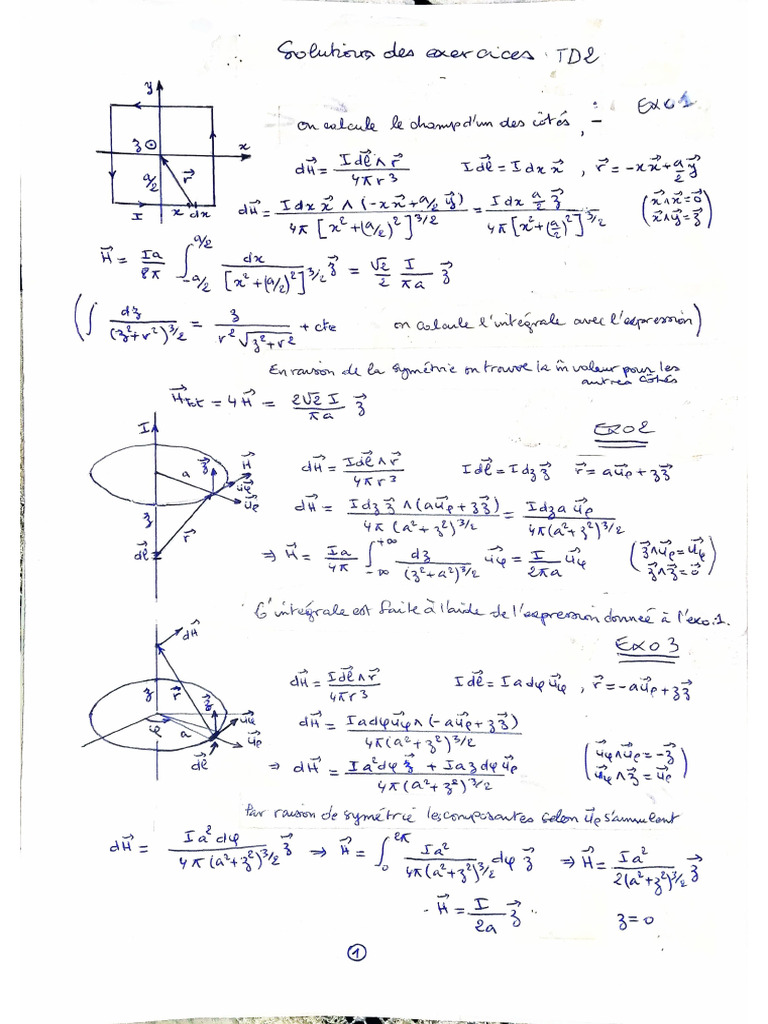 Solutions des exercices TD2
Exo 1
on calcule le champ d'un des côtés,
y
z⊙
x
a/2
r⃗
I
x
dx
dH⃗ = Idl⃗ ∧ r⃗ / 4πr³    Idl⃗ = Idx x⃗ , r⃗ = -x x⃗ + a/2 y⃗
dH⃗ = Idx x⃗ ∧ (-x x⃗ + a/2 y⃗) / 4π[x²+(a/2)²]^3/2 = Idx a/2 z⃗ / 4π[x²+(a/2)²]^3/2    (x⃗∧x⃗=0⃗
x⃗∧y⃗=z⃗)
H⃗ = Ia/8π ∫_-a/2^a/2 dx / [x²+(a/2)²]^3/2 z⃗ = √2/2 I/πa z⃗
(∫ dz / (z²+r²)^3/2 = z / r²√z²+r² + cte    on calcule l'intégrale avec l'expression)
En raison de la symétrie on trouve la m̂ valeur pour les
autres côtés
H⃗tot = 4H⃗ = 2√2 I / πa z⃗
Exo 2
I
a
z⃗
H⃗
u⃗φ
u⃗ρ
z
r⃗
dl⃗
dH⃗ = Idl⃗ ∧ r⃗ / 4πr³    Idl⃗ = Idz z⃗    r⃗ = au⃗ρ + z z⃗
dH⃗ = Idz z⃗ ∧ (au⃗ρ + z z⃗) / 4π(a²+z²)^3/2 = Idz a u⃗φ / 4π(a²+z²)^3/2
⇒ H⃗ = Ia/4π ∫_-∞^+∞ dz / (z²+a²)^3/2 u⃗φ = I/2πa u⃗φ    (z⃗∧u⃗ρ=u⃗φ
z⃗∧z⃗=0⃗)
L'intégrale est faite à l'aide de l'expression donnée à l'exo.1.
Exo 3
dH⃗
z
r⃗
z⃗
u⃗φ
u⃗ρ
φ
a
dl⃗
dH⃗ = Idl⃗ ∧ r⃗ / 4πr³    Idl⃗ = Iadφ u⃗φ , r⃗ = -au⃗ρ + z z⃗
dH⃗ = Iadφ u⃗φ ∧ (-au⃗ρ + z z⃗) / 4π(a²+z²)^3/2
⇒ dH⃗ = Ia²dφ z⃗ + Iaz dφ u⃗ρ / 4π(a²+z²)^3/2    (u⃗φ∧u⃗ρ=-z⃗
u⃗φ∧z⃗=u⃗ρ)
Par raison de symétrie les composantes selon u⃗ρ s'annulent
dH⃗ = Ia²dφ / 4π(a²+z²)^3/2 z⃗ ⇒ H⃗ = ∫_0^2π Ia² / 4π(a²+z²)^3/2 dφ z⃗ ⇒ H⃗ = Ia² / 2(a²+z²)^3/2 z⃗
H⃗ = I/2a z⃗    z=0
1